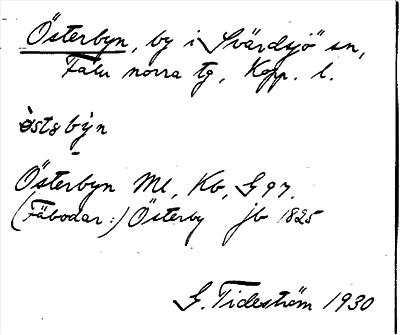 Österbyn, by i Svärdsjö sn,
Falu norra tg, Kopp. l.
östəbỳn
Österbyn Ml, Kb, G 97.
(Fäbodar:) Österby jb 1825
G. Tideström 1930